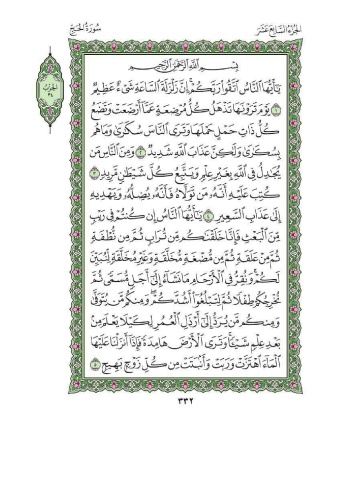 سُورَةُ الحَجِّ
الجُزْءُ السَّابِعَ عَشَرَ
الحِزْبُ
٣٤
بِسْمِ اللَّهِ الرَّحْمَٰنِ الرَّحِيمِ
يَٰٓأَيُّهَا النَّاسُ اتَّقُوا۟ رَبَّكُمْ ۚ إِنَّ زَلْزَلَةَ السَّاعَةِ شَىْءٌ عَظِيمٌ
﴿١﴾ يَوْمَ تَرَوْنَهَا تَذْهَلُ كُلُّ مُرْضِعَةٍ عَمَّآ أَرْضَعَتْ وَتَضَعُ
كُلُّ ذَاتِ حَمْلٍ حَمْلَهَا وَتَرَى النَّاسَ سُكَٰرَىٰ وَمَا هُم
بِسُكَٰرَىٰ وَلَٰكِنَّ عَذَابَ اللَّهِ شَدِيدٌ ﴿٢﴾ وَمِنَ النَّاسِ مَن
يُجَٰدِلُ فِى اللَّهِ بِغَيْرِ عِلْمٍ وَيَتَّبِعُ كُلَّ شَيْطَٰنٍ مَّرِيدٍ ﴿٣﴾
كُتِبَ عَلَيْهِ أَنَّهُۥ مَن تَوَلَّاهُ فَأَنَّهُۥ يُضِلُّهُۥ وَيَهْدِيهِ
إِلَىٰ عَذَابِ السَّعِيرِ ﴿٤﴾ يَٰٓأَيُّهَا النَّاسُ إِن كُنتُمْ فِى رَيْبٍ
مِّنَ الْبَعْثِ فَإِنَّا خَلَقْنَٰكُم مِّن تُرَابٍ ثُمَّ مِن نُّطْفَةٍ
ثُمَّ مِنْ عَلَقَةٍ ثُمَّ مِن مُّضْغَةٍ مُّخَلَّقَةٍ وَغَيْرِ مُخَلَّقَةٍ لِّنُبَيِّنَ
لَكُمْ ۚ وَنُقِرُّ فِى الْأَرْحَامِ مَا نَشَآءُ إِلَىٰٓ أَجَلٍ مُّسَمًّى ثُمَّ
نُخْرِجُكُمْ طِفْلًا ثُمَّ لِتَبْلُغُوٓا۟ أَشُدَّكُمْ ۖ وَمِنكُم مَّن يُتَوَفَّىٰ
وَمِنكُم مَّن يُرَدُّ إِلَىٰٓ أَرْذَلِ الْعُمُرِ لِكَيْلَا يَعْلَمَ مِنۢ
بَعْدِ عِلْمٍ شَيْـًٔا ۚ وَتَرَى الْأَرْضَ هَامِدَةً فَإِذَآ أَنزَلْنَا عَلَيْهَا
الْمَآءَ اهْتَزَّتْ وَرَبَتْ وَأَنۢبَتَتْ مِن كُلِّ زَوْجٍۭ بَهِيجٍ ﴿٥﴾
٣٣٢